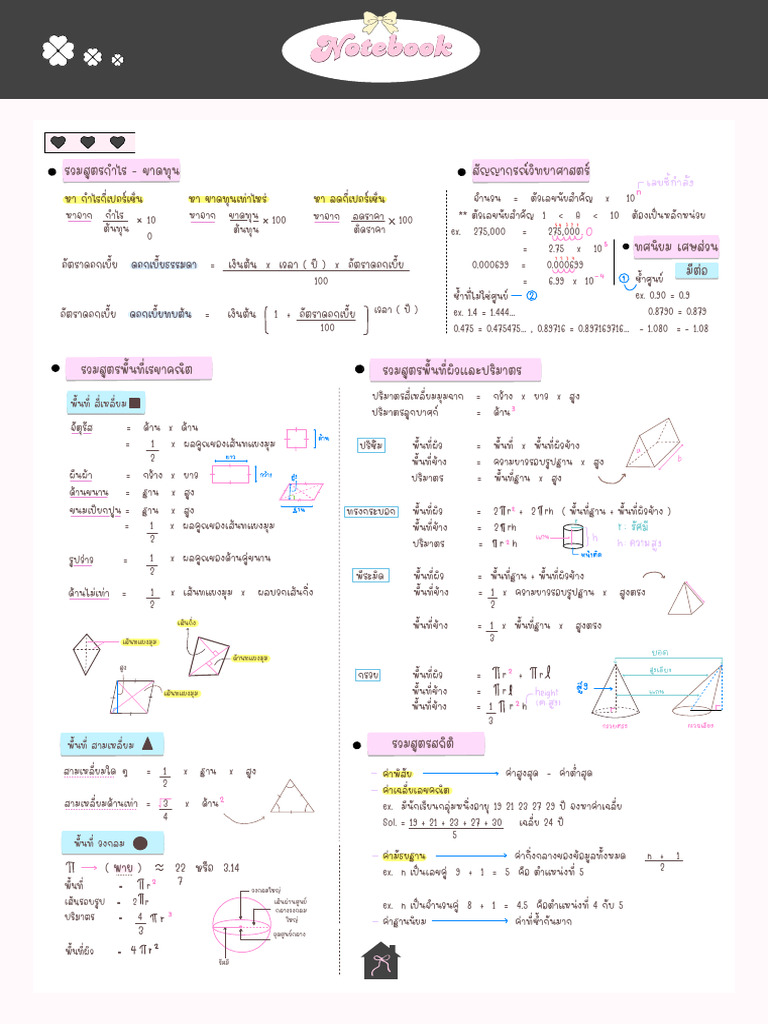 Notebook
รวมสูตรกำไร - ขาดทุน
หา กำไรกี่เปอร์เซ็น หา ขาดทุนเท่าไหร่ หา ลดกี่เปอร์เซ็น
หาจาก กำไร × 10 หาจาก ขาดทุน × 100 หาจาก ลดราคา × 100
ต้นทุน 0 ต้นทุน ติดราคา
อัตราดอกเบี้ย ดอกเบี้ยธรรมดา = เงินต้น x เวลา ( ปี ) x อัตราดอกเบี้ย
100
อัตราดอกเบี้ย ดอกเบี้ยทบต้น = เงินต้น [ 1 + อัตราดอกเบี้ย ] เวลา ( ปี )
100
สัญญากรณ์วิทยาศาสตร์
เลขชี้กำลัง
จำนวน = ตัวเลขนัยสำคัญ x 10 n
** ตัวเลขนัยสำคัญ 1 < a < 10 ต้องเป็นหลักหน่วย
ex. 275,000 = 275,000.0
= 2.75 x 10 5
0.000699 = 0.000699
= 6.99 x 10 -4
ทศนิยม เศษส่วน
มีต่อ
① ซ้ำศูนย์
ex. 0.90 = 0.9
0.8790 = 0.879
- 1.080 = - 1.08
ซ้ำที่ไม่ใช่ศูนย์ — ②
ex. 1.4 = 1.444...
0.475 = 0.475475... , 0.89716 = 0.897169716...
รวมสูตรพื้นที่เรขาคณิต
พื้นที่ สี่เหลี่ยม
จัตุรัส = ด้าน x ด้าน
= 1/2 x ผลคูณของเส้นทแยงมุม
ด้าน
ผืนผ้า = กว้าง x ยาว
ยาว
กว้าง
ด้านขนาน = ฐาน x สูง
สูง
ฐาน
ขนมเปียกปูน = ฐาน x สูง
= 1/2 x ผลคูณของเส้นทแยงมุม
รูปว่าว = 1/2 x ผลคูณของด้านคู่ขนาน
ด้านไม่เท่า = 1/2 x เส้นทแยงมุม x ผลบวกเส้นกิ่ง
เส้นทแยงมุม
เส้นกิ่ง
ด้านทแยงมุม
สูง
เส้นทแยงมุม
พื้นที่ สามเหลี่ยม
สามเหลี่ยมใด ๆ = 1/2 x ฐาน x สูง
สามเหลี่ยมด้านเท่า = √3/4 x ด้าน 2
พื้นที่ วงกลม
π → ( พาย ) ≈ 22/7 หรือ 3.14
พื้นที่ = πr²
เส้นรอบรูป = 2πr
ปริมาตร = 4/3 πr³
พื้นที่ผิว = 4πr²
วงกลมใหญ่
เส้นผ่านศูนย์
กลางวงกลม
ใหญ่
จุดศูนย์กลาง
รัศมี
รวมสูตรพื้นที่ผิวและปริมาตร
ปริมาตรสี่เหลี่ยมมุมฉาก = กว้าง x ยาว x สูง
ปริมาตรลูกบาศก์ = ด้าน³
ปริซึม พื้นที่ผิว = พื้นที่ x พื้นที่ผิวข้าง
พื้นที่ข้าง = ความยาวรอบรูปฐาน x สูง
ปริมาตร = พื้นที่ฐาน x สูง
a
b
ทรงกระบอก พื้นที่ผิว = 2πr² + 2πrh ( พื้นที่ฐาน + พื้นที่ผิวข้าง )
พื้นที่ข้าง = 2πrh
ปริมาตร = πr²h
แกน
h
หน้าตัด
r : รัศมี
h : ความสูง
พีระมิด พื้นที่ผิว = พื้นที่ฐาน + พื้นที่ผิวข้าง
พื้นที่ข้าง = 1/2 x ความยาวรอบรูปฐาน x สูงตรง
พื้นที่ข้าง = 1/3 x พื้นที่ฐาน x สูงตรง
กรวย พื้นที่ผิว = πr² + πrl
พื้นที่ข้าง = πrl
พื้นที่ข้าง = 1/3 πr²h
height
(ค.สูง)
ยอด
สูงเอียง
แกน
กรวยตรง
กรวยเอียง
รวมสูตรสถิติ
– ค่าพิสัย → ค่าสูงสุด - ค่าต่ำสุด
– ค่าเฉลี่ยเลขคณิต
ex. มีนักเรียนกลุ่มหนึ่งอายุ 19 21 23 27 29 ปี จงหาค่าเฉลี่ย
Sol. = 19 + 21 + 23 + 27 + 30 เฉลี่ย 24 ปี
5
– ค่ามัธยฐาน → ค่ากึ่งกลางของข้อมูลทั้งหมด n + 1
2
ex. n เป็นเลขคู่ 9 + 1 = 5 คือ ตำแหน่งที่ 5
ex. n เป็นจำนวนคู่ 8 + 1 = 4.5 คือตำแหน่งที่ 4 กับ 5
– ค่าฐานนิยม → ค่าที่ซ้ำกันมาก